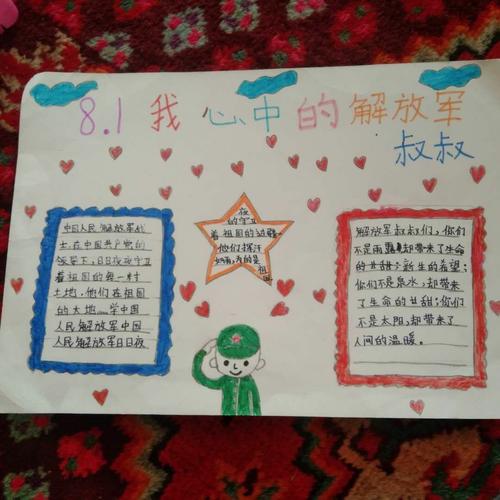 8.1 我心中的解放军
叔叔
中国人民解放军战
士,在中国共产党的
领导下,日日夜夜守卫
着祖国的每一村
土地,他们在祖国
的大地 学中国
人民解放军中国
人民解放军日日夜
夜
的守卫
着祖国的边疆。
他们挥汗
为的是
祖
国
解放军叔叔们,你们
不是雨露却带来了生命
的甘甜;新生的希望;
你们不是泉水,却带来
了生命的甘甜;你们
不是太阳,却带来了
人间的温暖。